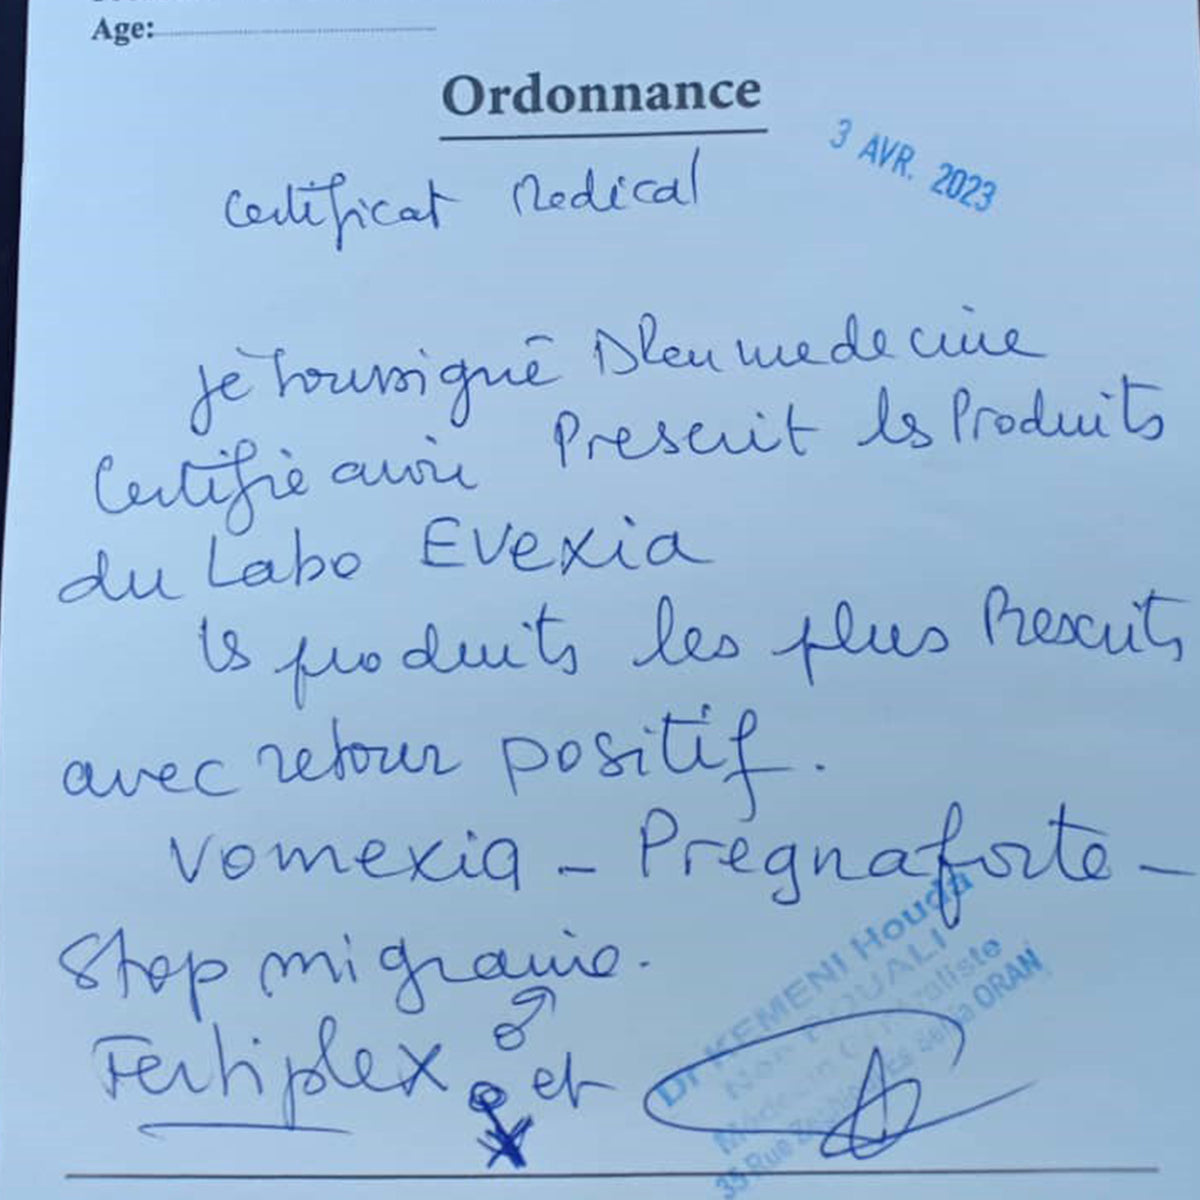 Age:
Ordonnance
3 AVR. 2023
Certificat Medical
Je soussigné en medecine
Certifie avoir Prescrit les Produits
du Labo Evexia
les produits les plus Prescrits
avec retour positif.
Vomexia - Pregnaforte -
Stop migraine.
Fertiplex ♀ et ♂
Dr KEMENI Houda
OUALI
Médecin Généraliste
35 Rue ORAN